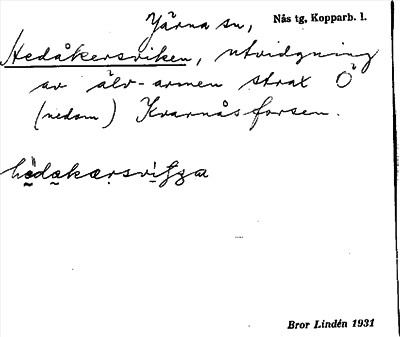 Järna sn, Nås tg, Kopparb. l.
Hedåkersviken, utvidgning
av älv-armen strax Ö
(nedom) Kvarnåsforsen.
Bror Lindén 1931